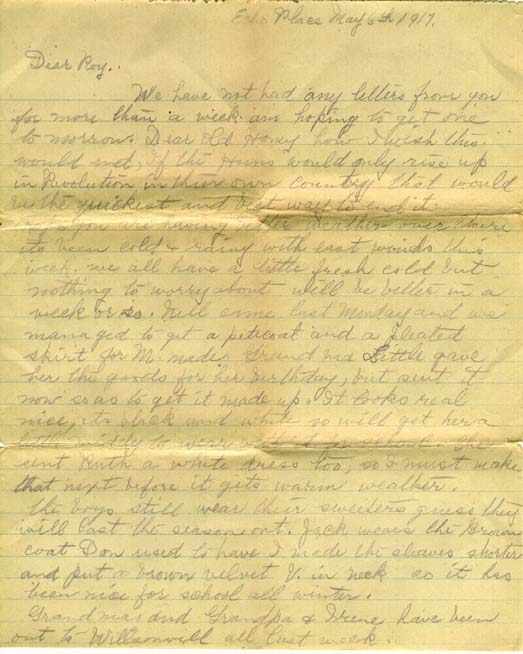 Echo Place May 6th 1917.
Dear Roy..
We have not had any letters from you
for more than a week. am hoping to get one
to morrow. Dear Old Honey how I wish this
would end, if the Huns would only rise up
in Revolution in their own country that would
be the quickest and best way to end it.
you are having better weather over there
its been cold & rainy with east winds this
week. we all have a little fresh cold but
nothing to worry about will be better in a
week or so. Nell came last Monday and we
managed to get a peticoat and a pleated
skirt for M. made. Grand ma Little gave
her the goods for her birthday, but sent it
now so as to get it made up. It looks real
nice, its black and white so will get her a
little middy to wear with it for school. She
sent Ruth a white dress too, so I must make
that next before it gets warm weather.
The boys still wear their sweaters guess they
will last the season out. Jack wears the Brown
coat Don used to have I made the sleaves shorter
and put a brown velvet V. in neck so it has
been nice for school all winter.
Grandma and Grandpa & Irene have been
out to Willsonvill all last week.